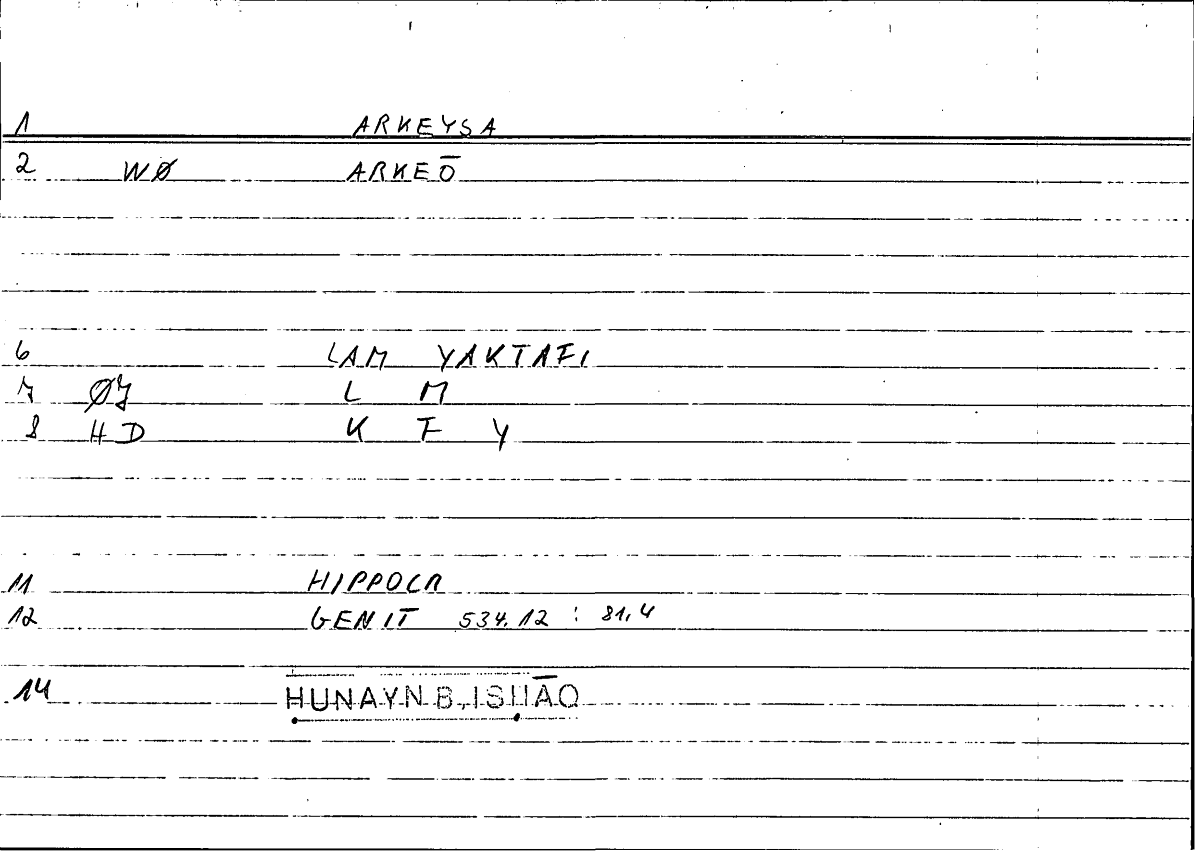 1 ARKEYSA
2 WØ ARKEŌ
6 LAM YAKTAFI
7 ØJ L M
8 HD K F Y
11 HIPPOCR
12 GENIT 534.12 : 81,4
14 ḤUNAYN B. ISḤĀQ